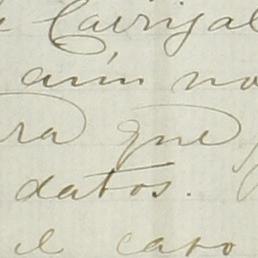 Carrizal
aún no
ra que
datos.
el caso